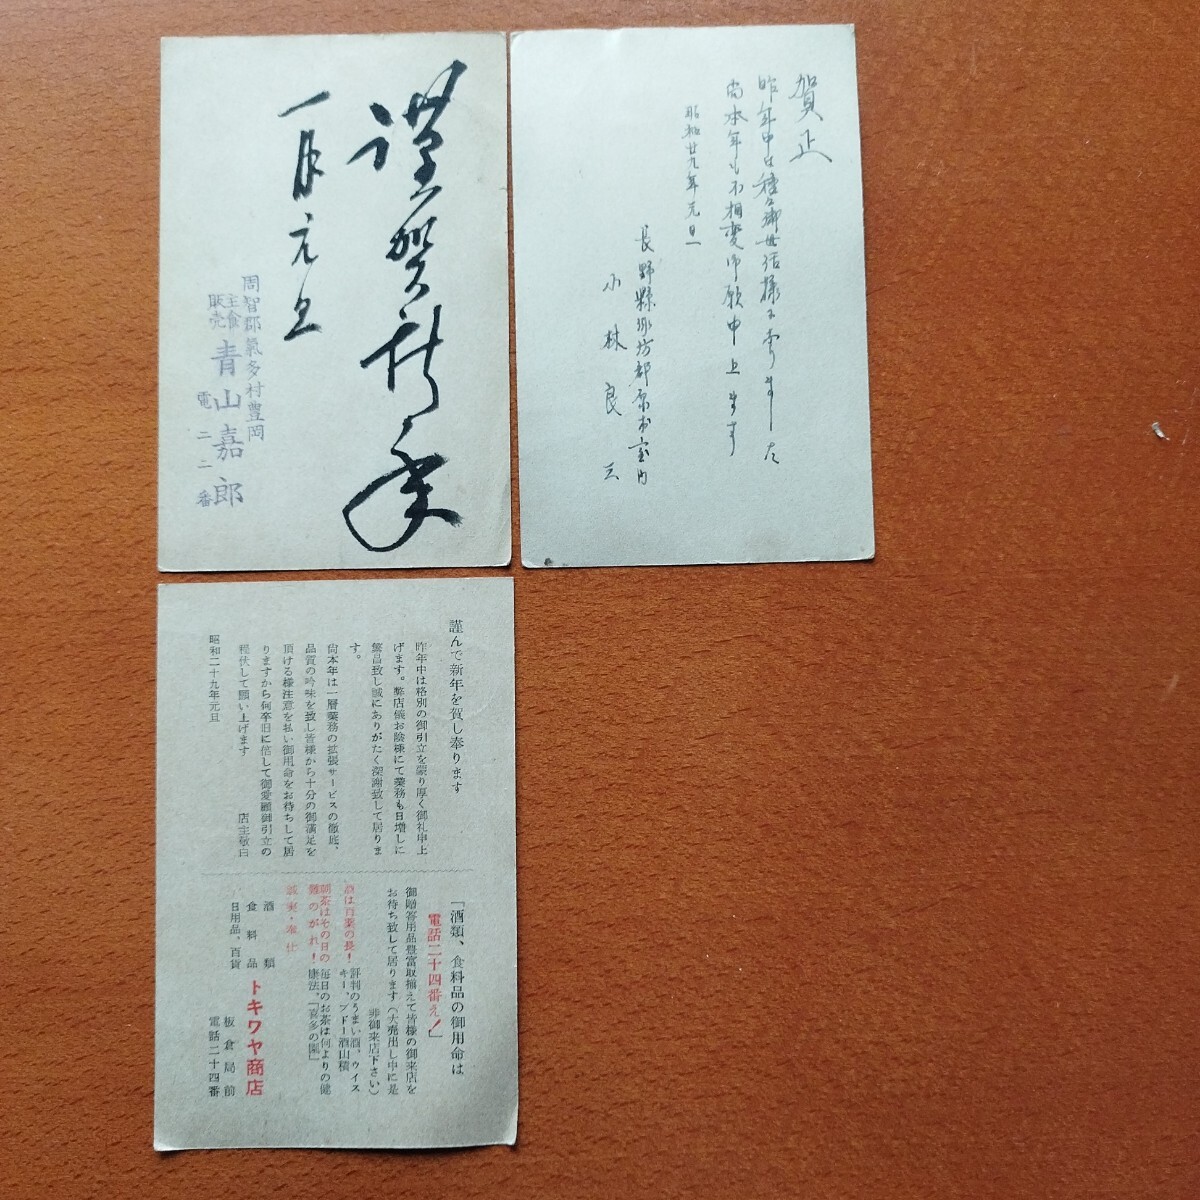 謹賀新年
一月元旦
周智郡氣多村豊岡
主食
販売
青山嘉郎
電二二番
賀正
昨年中は種々御世話様になりました
尚本年も不相変御願申上ます
昭和廿九年元旦
長野縣諏訪郡原村室内
小林良
謹んで新年を賀し奉ります
昨年中は格別の御引立を蒙り厚く御礼申上
げます。弊店儀お陰様にて業務も日増しに
繁昌致し誠にありがたく深謝致して居りま
す。
尚本年は一層業務の拡張サービスの徹底、
品質の吟味を致し皆様から十分の御満足を
頂ける様注意を払い御用命をお待ちして居
りますから何卒旧に倍して御愛顧御引立の
程伏して願い上げます
店主敬白
昭和二十九年元旦
「酒類、食料品の御用命は
電話二十四番え!」
御贈答用品豊富取揃えて皆様の御来店を
お待ち致して居ります(大売出し中に是
非御来店下さい)
酒は百薬の長!
評判のうまい酒、ウイス
キー、ブドー酒山積
朝茶はその日の
難のがれ!
毎日のお茶は何よりの健
康法、「喜多の園」
誠実・奉仕
酒類
食料品
日用品、百貨
トキワヤ商店
板倉局前
電話二十四番